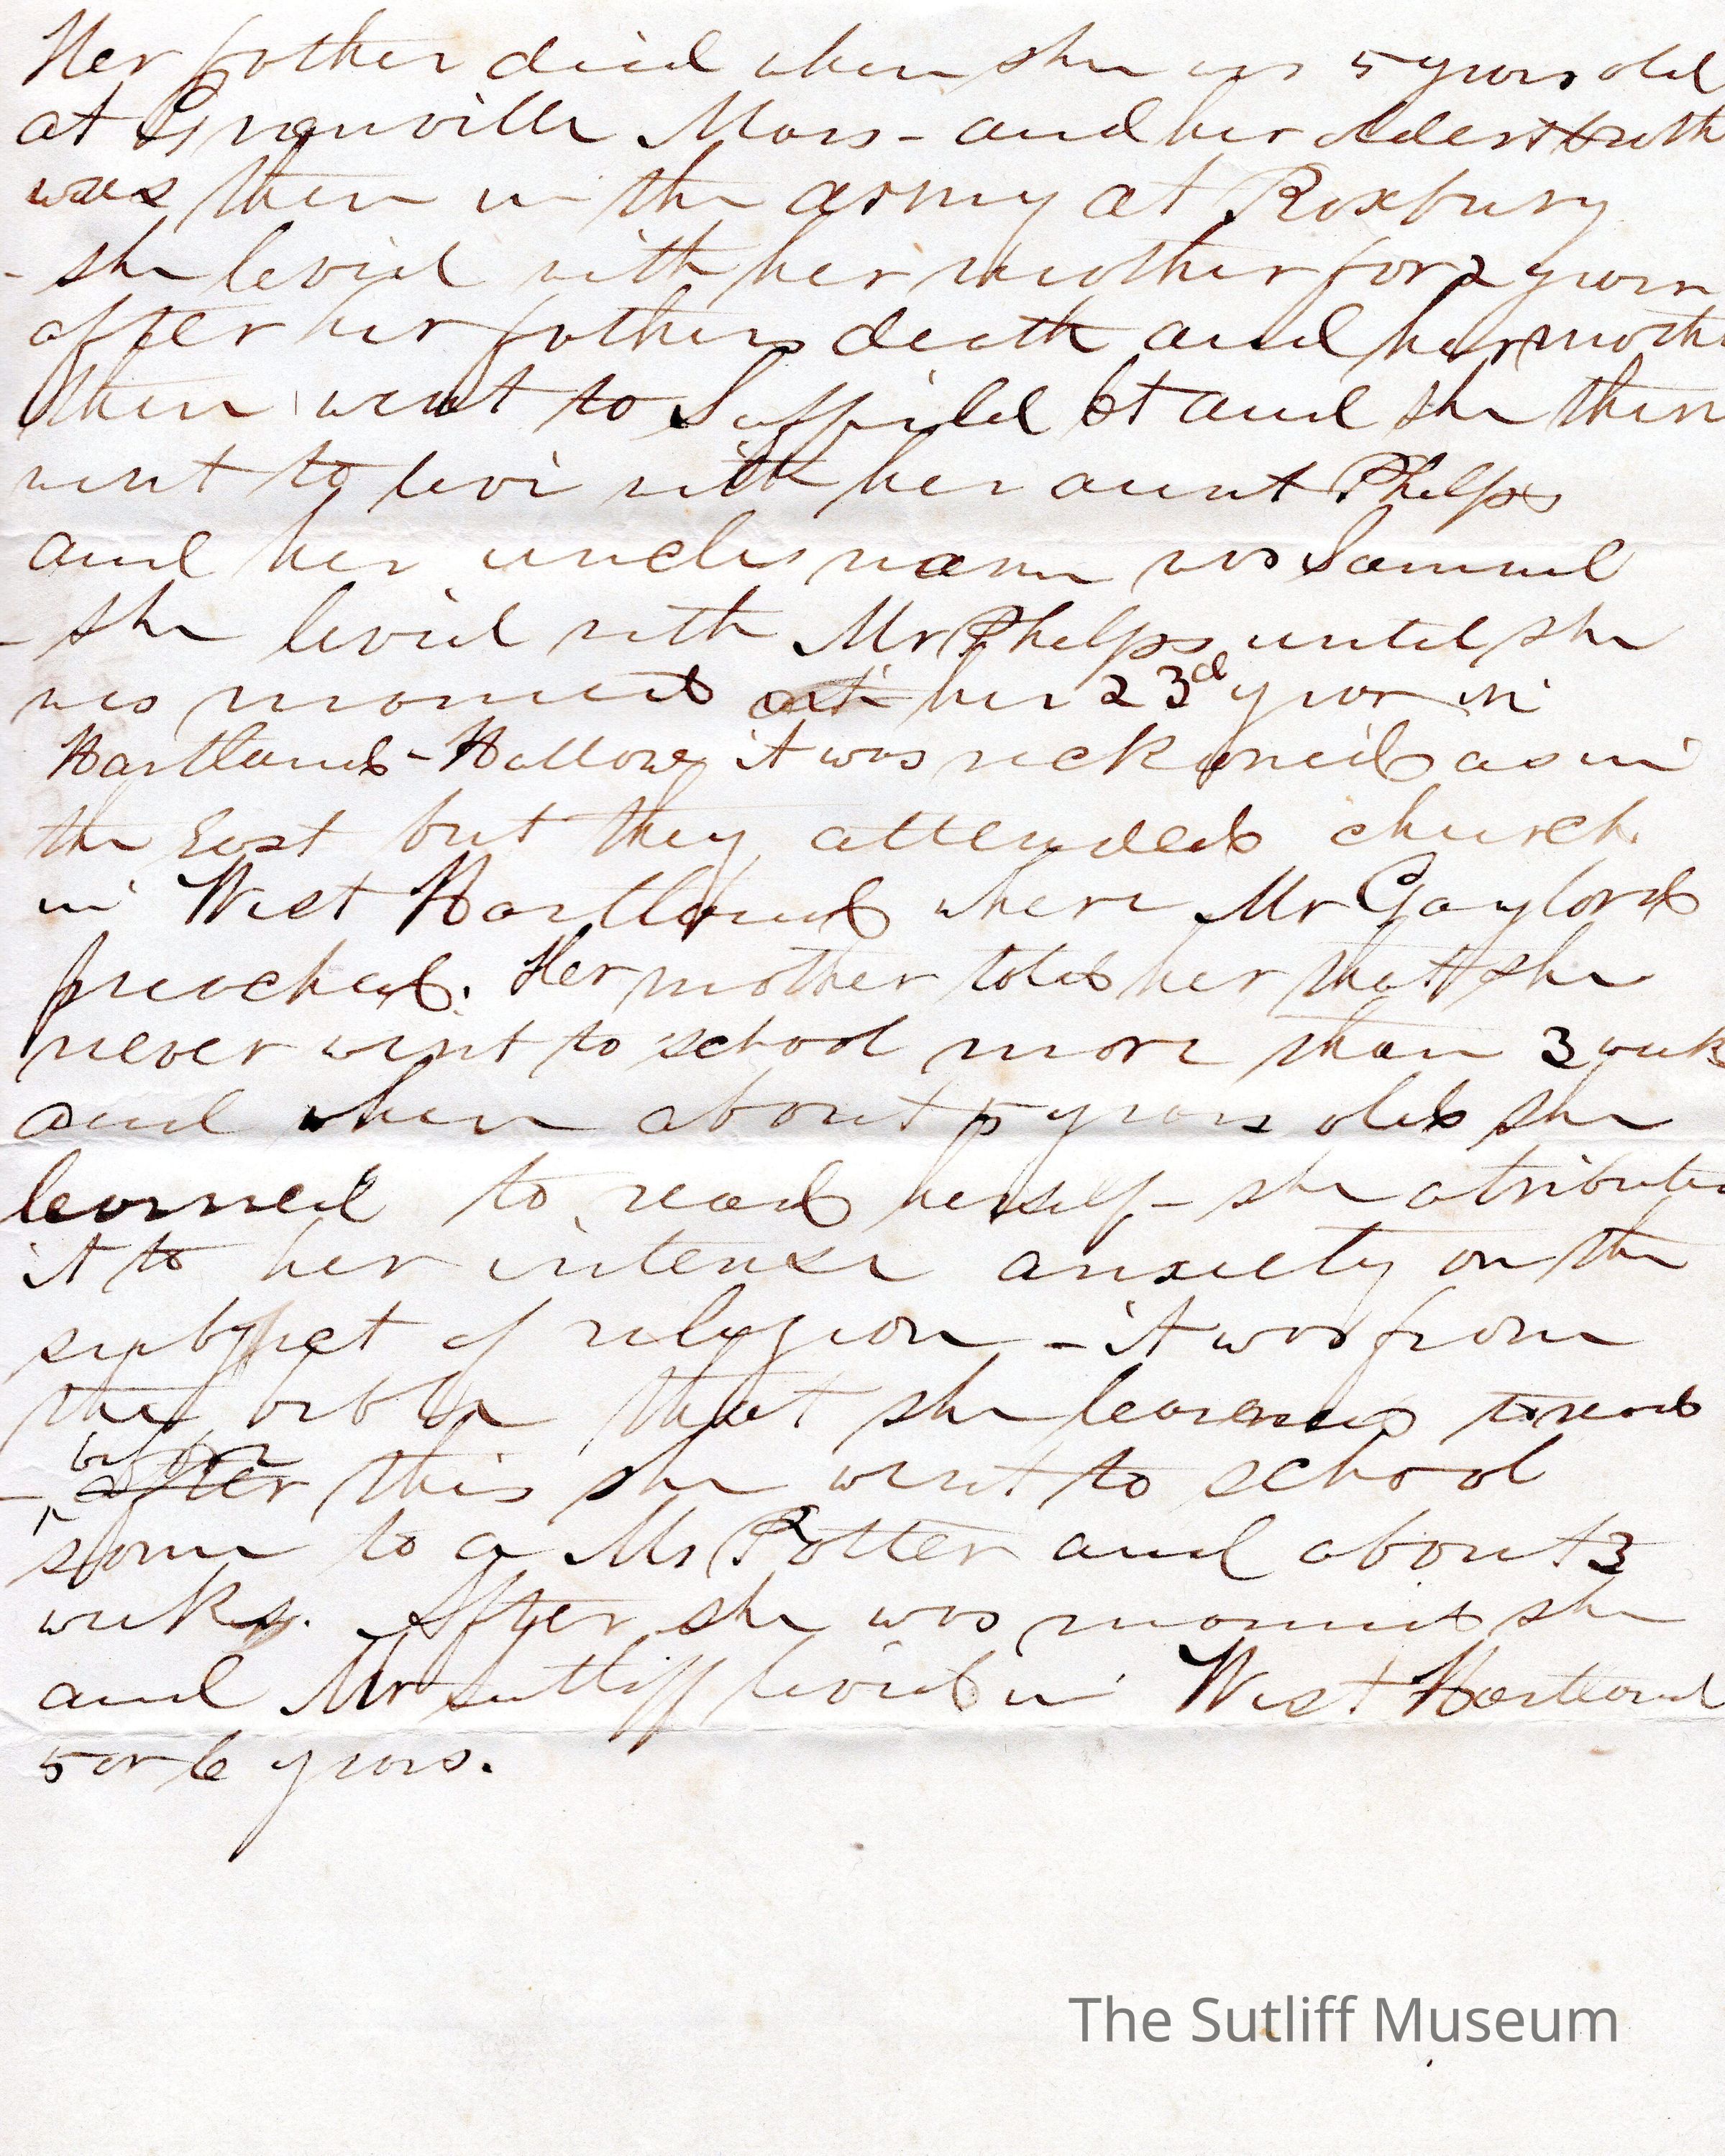 Her father died when she was 5 years old
at Granville Mass - and her oldest broth
was then in the army at Roxbury
- she lived with her mother for 2 years
after her fathers death and her moth
then went to Suffield Ct and she then
went to live with her aunt Phelps
and her uncles name was Samuel
- she lived with Mr Phelps until she
was married her 23d year in
Hartland - Hollow it was reckoned as in
the East but they attended church
in West Hartland where Mr Gaylord
preached. Her mother told her that she
never went to school more than 3 weeks
and when about 5 years old she
learned to read herself - she atributes
it to her intense anxiety on the
subject of religion - it was from
the bible that she learned to read
before
- after this she went to school
some to a Mr Potter and about 3
weeks. After she was married she
and Mr Sutliff lived in West Hartland
5 or 6 years.
The Sutliff Museum